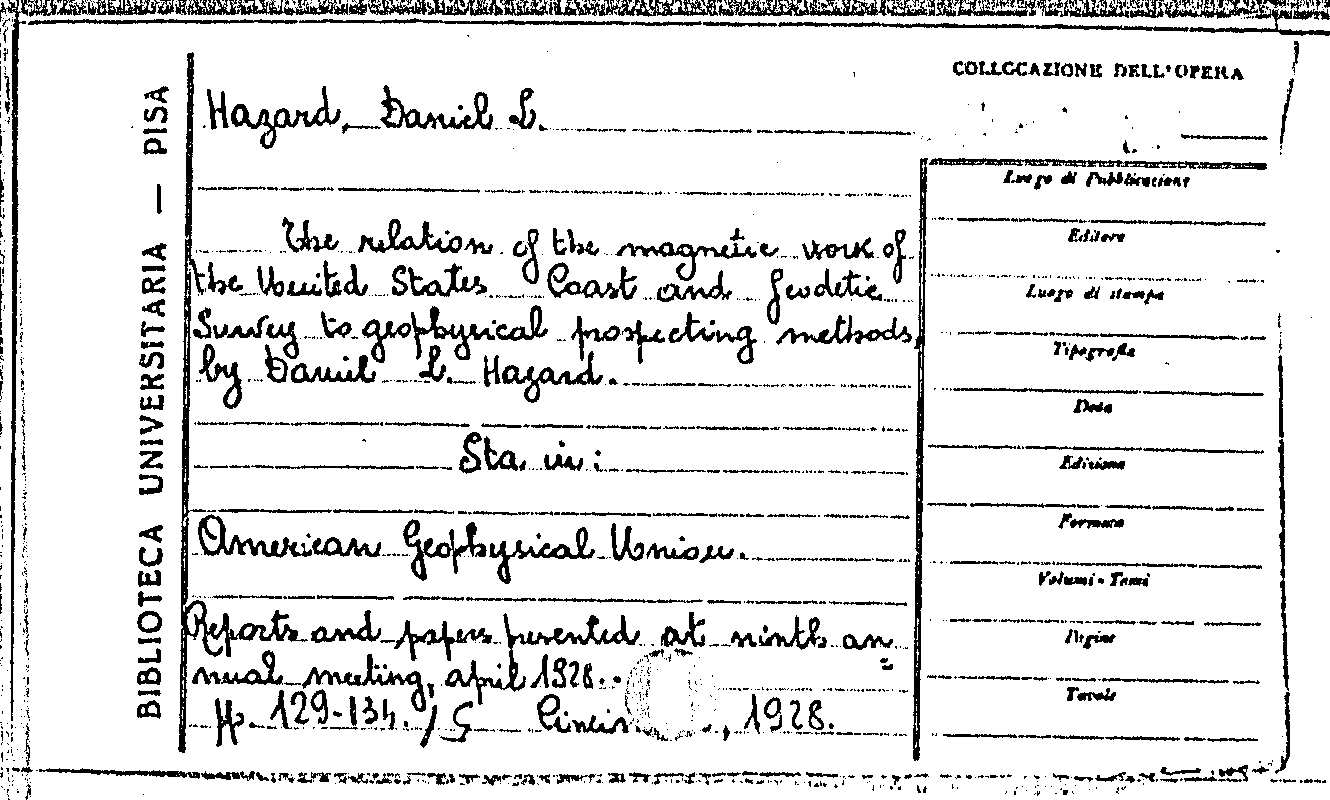 BIBLIOTECA UNIVERSITARIA — PISA
COLLOCAZIONE DELL'OPERA
Hazard, Daniel L.
The relation of the magnetic work of
the United States Coast and Geodetic
Survey to geophysical prospecting methods,
by Daniel L. Hazard.
Sta in:
American Geophysical Union.
Reports and papers presented at ninth an
nual meeting, april 1928.
pp. 129-134.
, 1928.
Luogo di Pubblicazione
Editore
Luogo di stampa
Tipografia
Data
Edizione
Formato
Volumi - Tomi
Pagine
Tavole